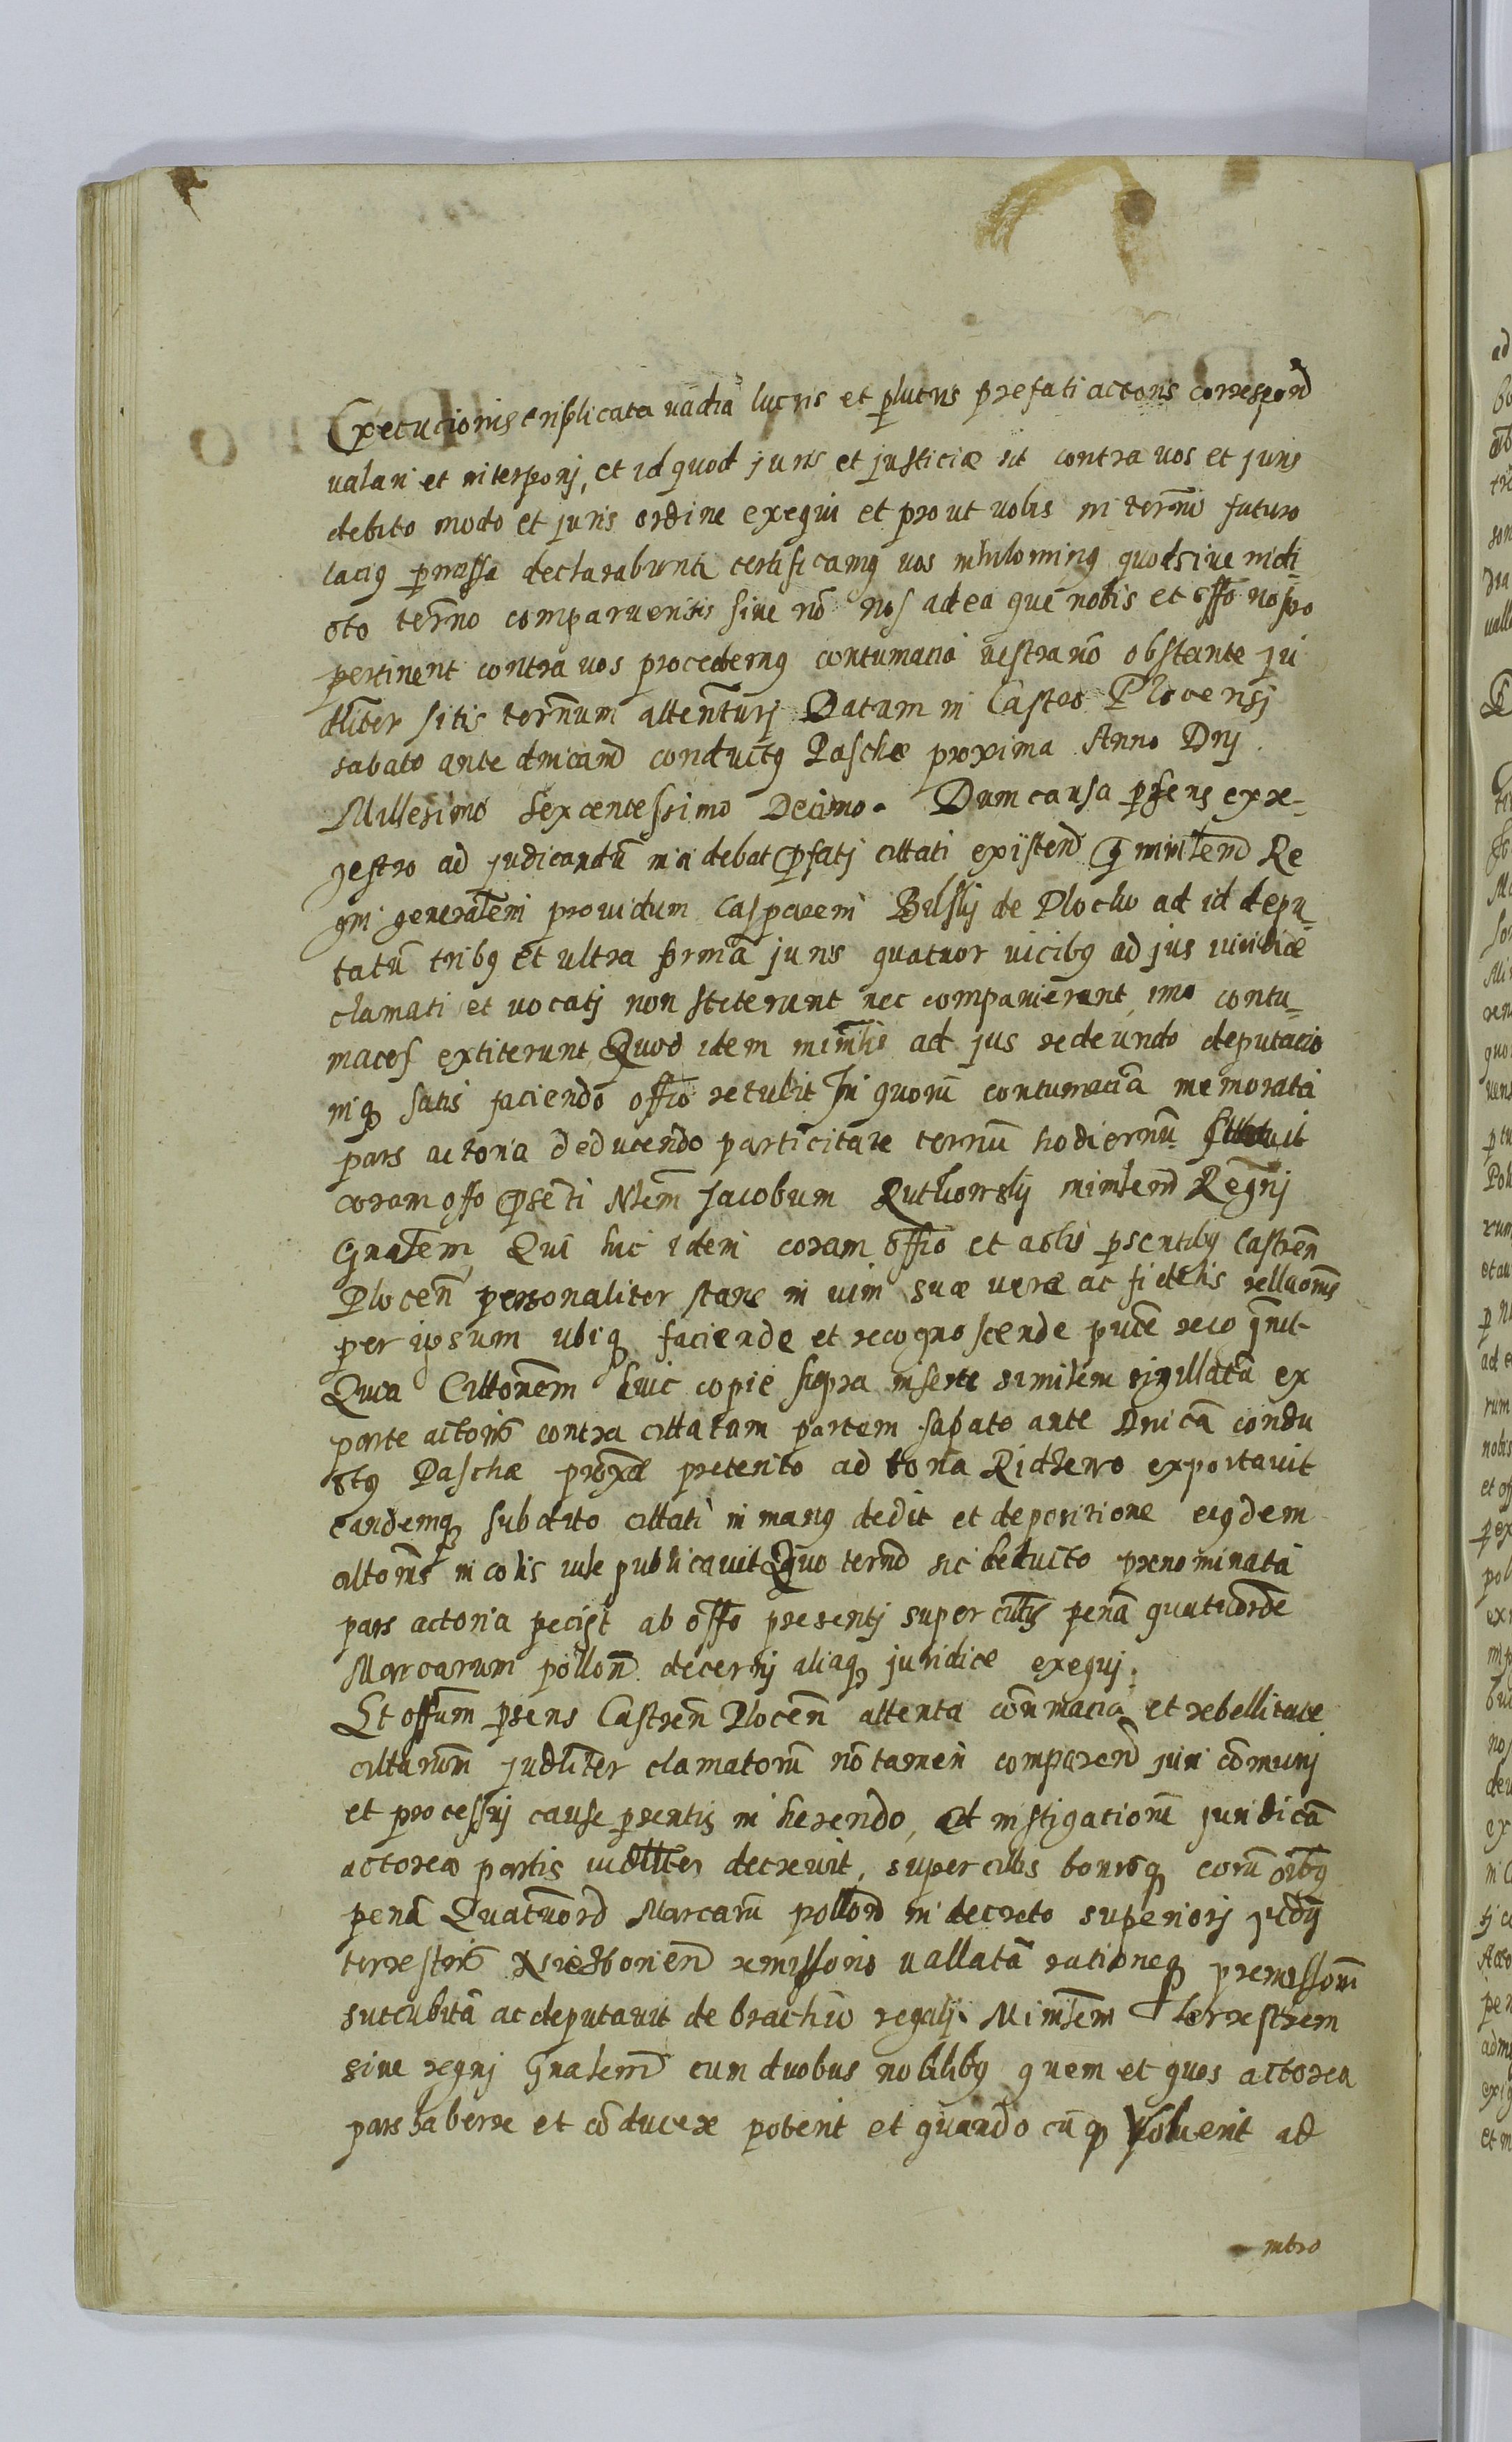 Execucionis triplicata vadia lucris et plucris prefati actoris correspond
valari et interponj, et id quod juris et justiciæ sit contra vos et juris
debito modo et juris ordine exequi et prout vobis in termo futuro
lacius pmissa declarabunt certificamus vos nihilominus quod sive indi-
cto termo comparueritis sive nō nos ad ea que nobis et offo nostro
pertinent contra vos procedemus contumacia vestra nō obstante ju
dliter sitis termnum attenturj Datum in Castro Plocensj
sabato ante dnicam conductus Paschæ proxima Anno Dnj
Millesimo Sexcentessimo Decimo. Dum causa psens ex re-
gestro ad judicandū incidebat pfatj citati existend p minlem Re
gni generalem providum Casparem Bilskj de Plocko ad id depu-
tatū tribus et ultra formā juris quatuor vicibus ad jus juridice
clamati et vocatj non steterunt nec comparuerunt, imo contu-
maces extiterunt Quod idem minlis ad jus redeundo deputacio
nique satis faciendo offio retulit In quorū contumaciā memorata
pars actoria deducendo parti citatæ termū hodiernū statuit
coram offo psenti Nlem Jacobum Rutkowskj minlem Regnj
Gnalem, Qui hic idem coram offio et actis psentibus Castren
Plocen personaliter stans in vim suæ veræ ac fidelis rellaonis
per ipsum ubique faciende et recognoscende puce recognit
Quia Cittonem huic copie supra inserte similem sigillatā ex
parte actoris contra cittatam partem sabato ante Dnicā condu
ctus Paschæ proxæ preterito ad bona Rickewo exportavit
eandemque subdito cittati in manus dedit et deposizione eiusdem
cittonis incolis ville publicavit Quo termo sic deducto prenominata
pars actoria peciit ab offo presentj super cittis penā quatuorde
Marcarum pollon decernj aliaque juridice exequj.
Et offum psens Castren Plocen attenta conmacia et rebellitate
cittarum judliter clamatorū nō tamen comparen juri cōmunj
et processuj cause psentis in herendo, ad instigacionē juridicā
actoreæ partis judliter decrevit, super cittis bonisque eorū oībus
penā Quatuord Marcarū pollon in decreto superiorj judij
terrestris remissoris vallatā rationeque premissorū
succubitā ac deputavit de brachio regalj. Minlem terrestrem
sive regnj Gnalem cum duobus nobilibus quem et quos actorea
pars habere et cōducere poterit et quando cūque voluerit ad
intro